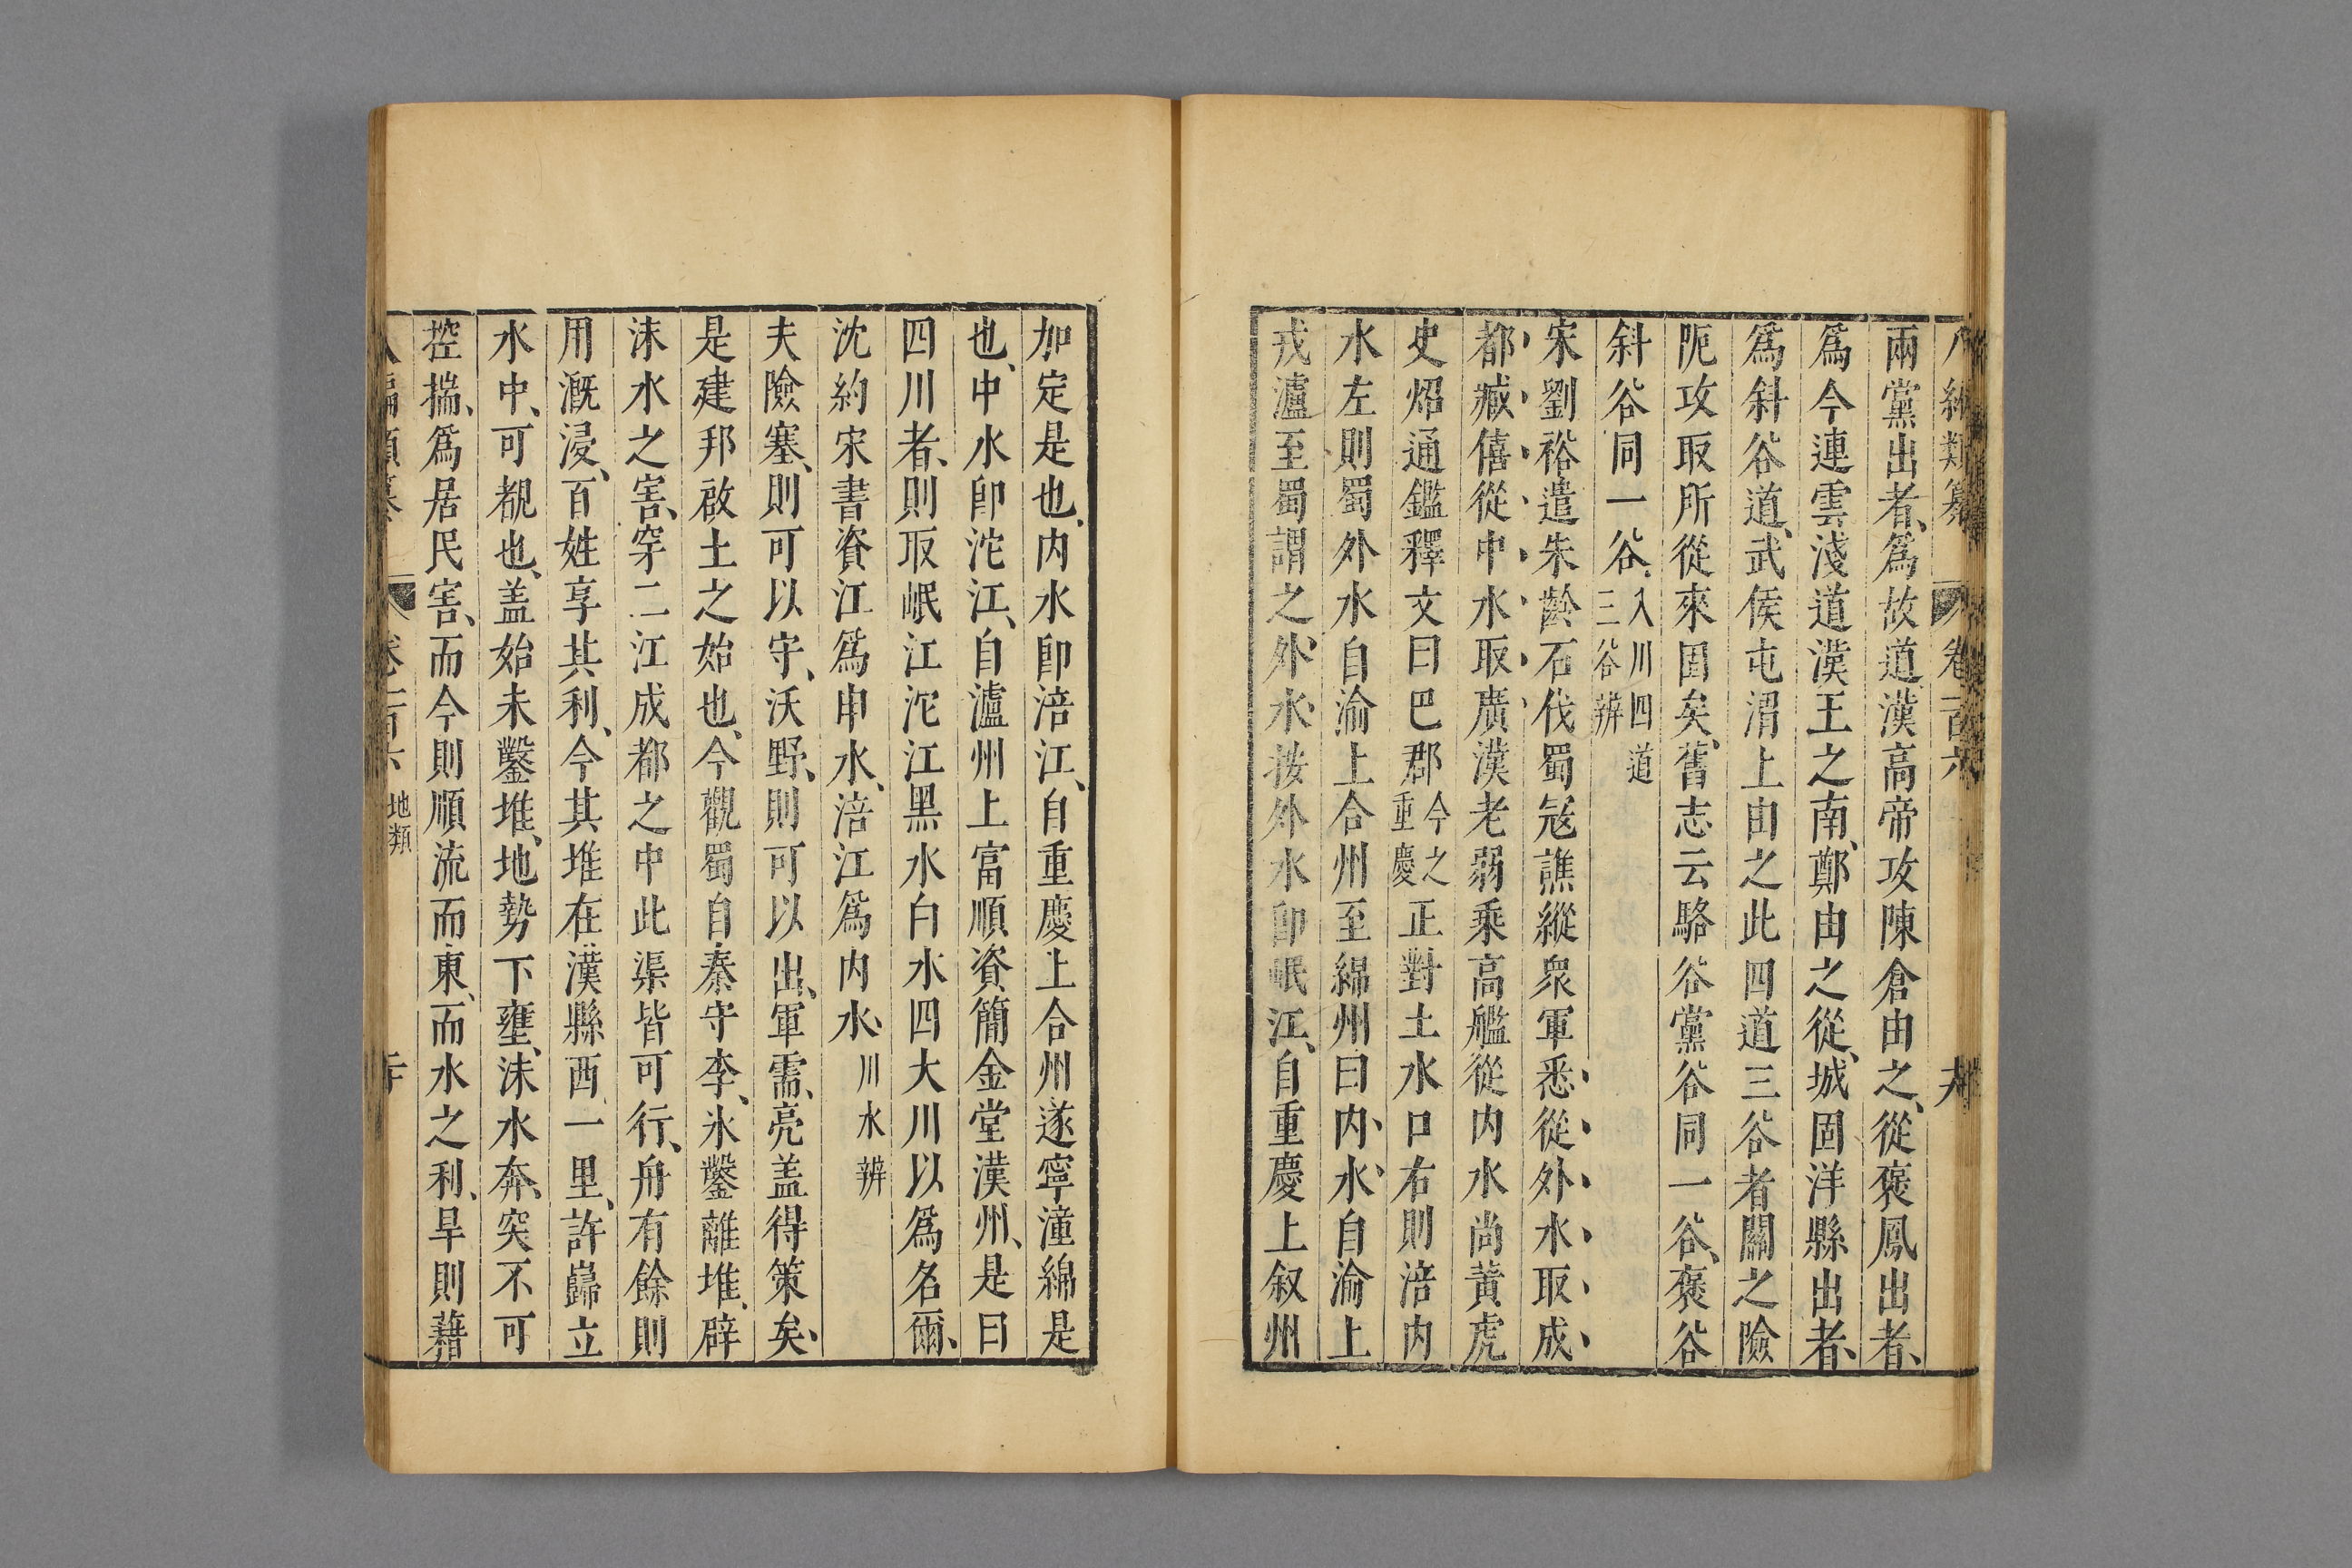 八編類纂 卷一百六 十九
兩黨出者、爲故道漢高帝攻陳倉由之、從褒鳳出者、
爲今連雲淺道漢王之南、鄭由之從、城固洋縣出者、
爲斜谷道、武侯屯渭上由之此四道三谷者關之險
阨攻取所從來固矣、舊志云駱谷黨谷同一谷、褒谷
斜谷同一谷、入川四道三谷辨
宋劉裕遣朱齡石伐蜀冦譙縱衆軍悉從外水取成
都臧僖從中水取廣漢老弱乘高艦從内水尚黃虎
史炤通鑑釋文曰巴郡今之重慶正對土水口右則涪内
水左則蜀外水自渝上合州至綿州曰内、水、自渝上
戎瀘至蜀謂之外水、按外水卽岷江、自重慶上叙州
加定是也、内水卽涪江、自重慶上合州遂寧潼綿是
也、中水卽沱江、自瀘州上富順資簡金堂漢州、是曰
四川者、則取岷江沱江黑水白水四大川以爲名爾、
沈約宋書資江爲中水、涪江爲内水、川水辨
夫險塞、則可以守、沃野、則可以出、軍需、亮盖得策矣、
是建邦啟土之始也、今觀蜀自秦守李、氷鑿離堆、辟
沬水之害、穿二江成都之中此渠皆可行、舟有餘則
用溉浸、百姓享其利、今其堆在漢縣西一里、許巋立
水中、可覩也、盖始未鑿堆、地勢下壅、沬水奔、突不可
控揣、爲居民害、而今則順流而東、而水之利、旱則藉
八編類纂 卷一百六 地類 二十